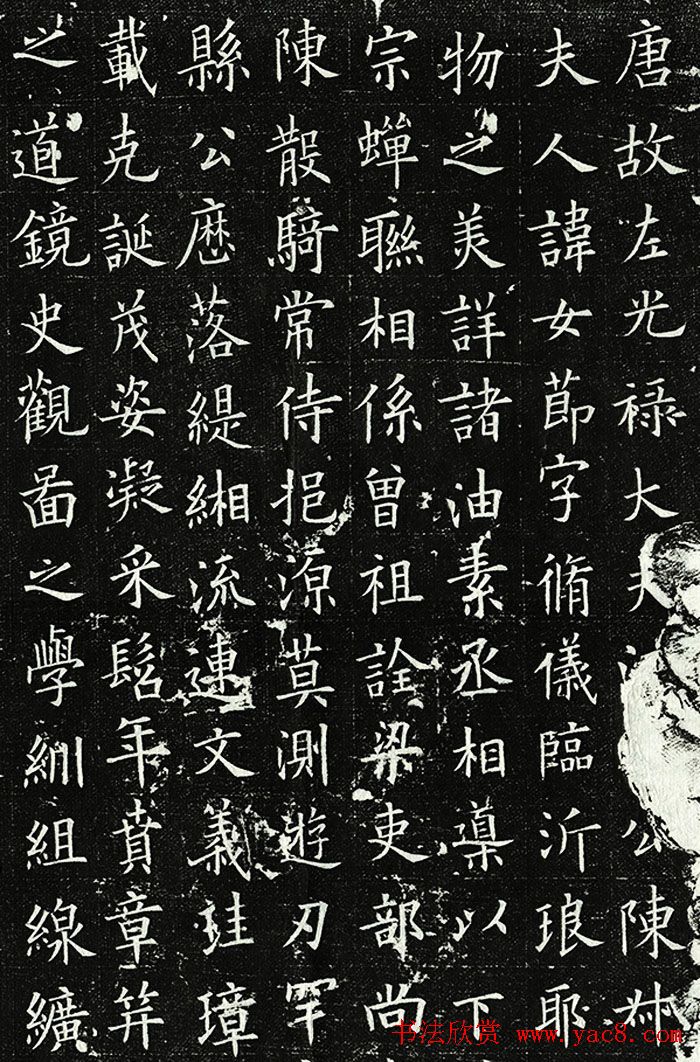 唐故左光禄大夫公陳
夫人諱女節字脩儀臨沂琅耶
物之美詳諸油素丞相導以下
宗蟬聯相係曾祖詮梁吏部尚
陳散騎常侍挹源莫測遊刃罕
縣公歷落緹緗流連文義珪璋
載克誕茂姿凝采髫年賁章笄
之道鏡史觀啚之學紃組線纊
书法欣赏 www.yac8.com